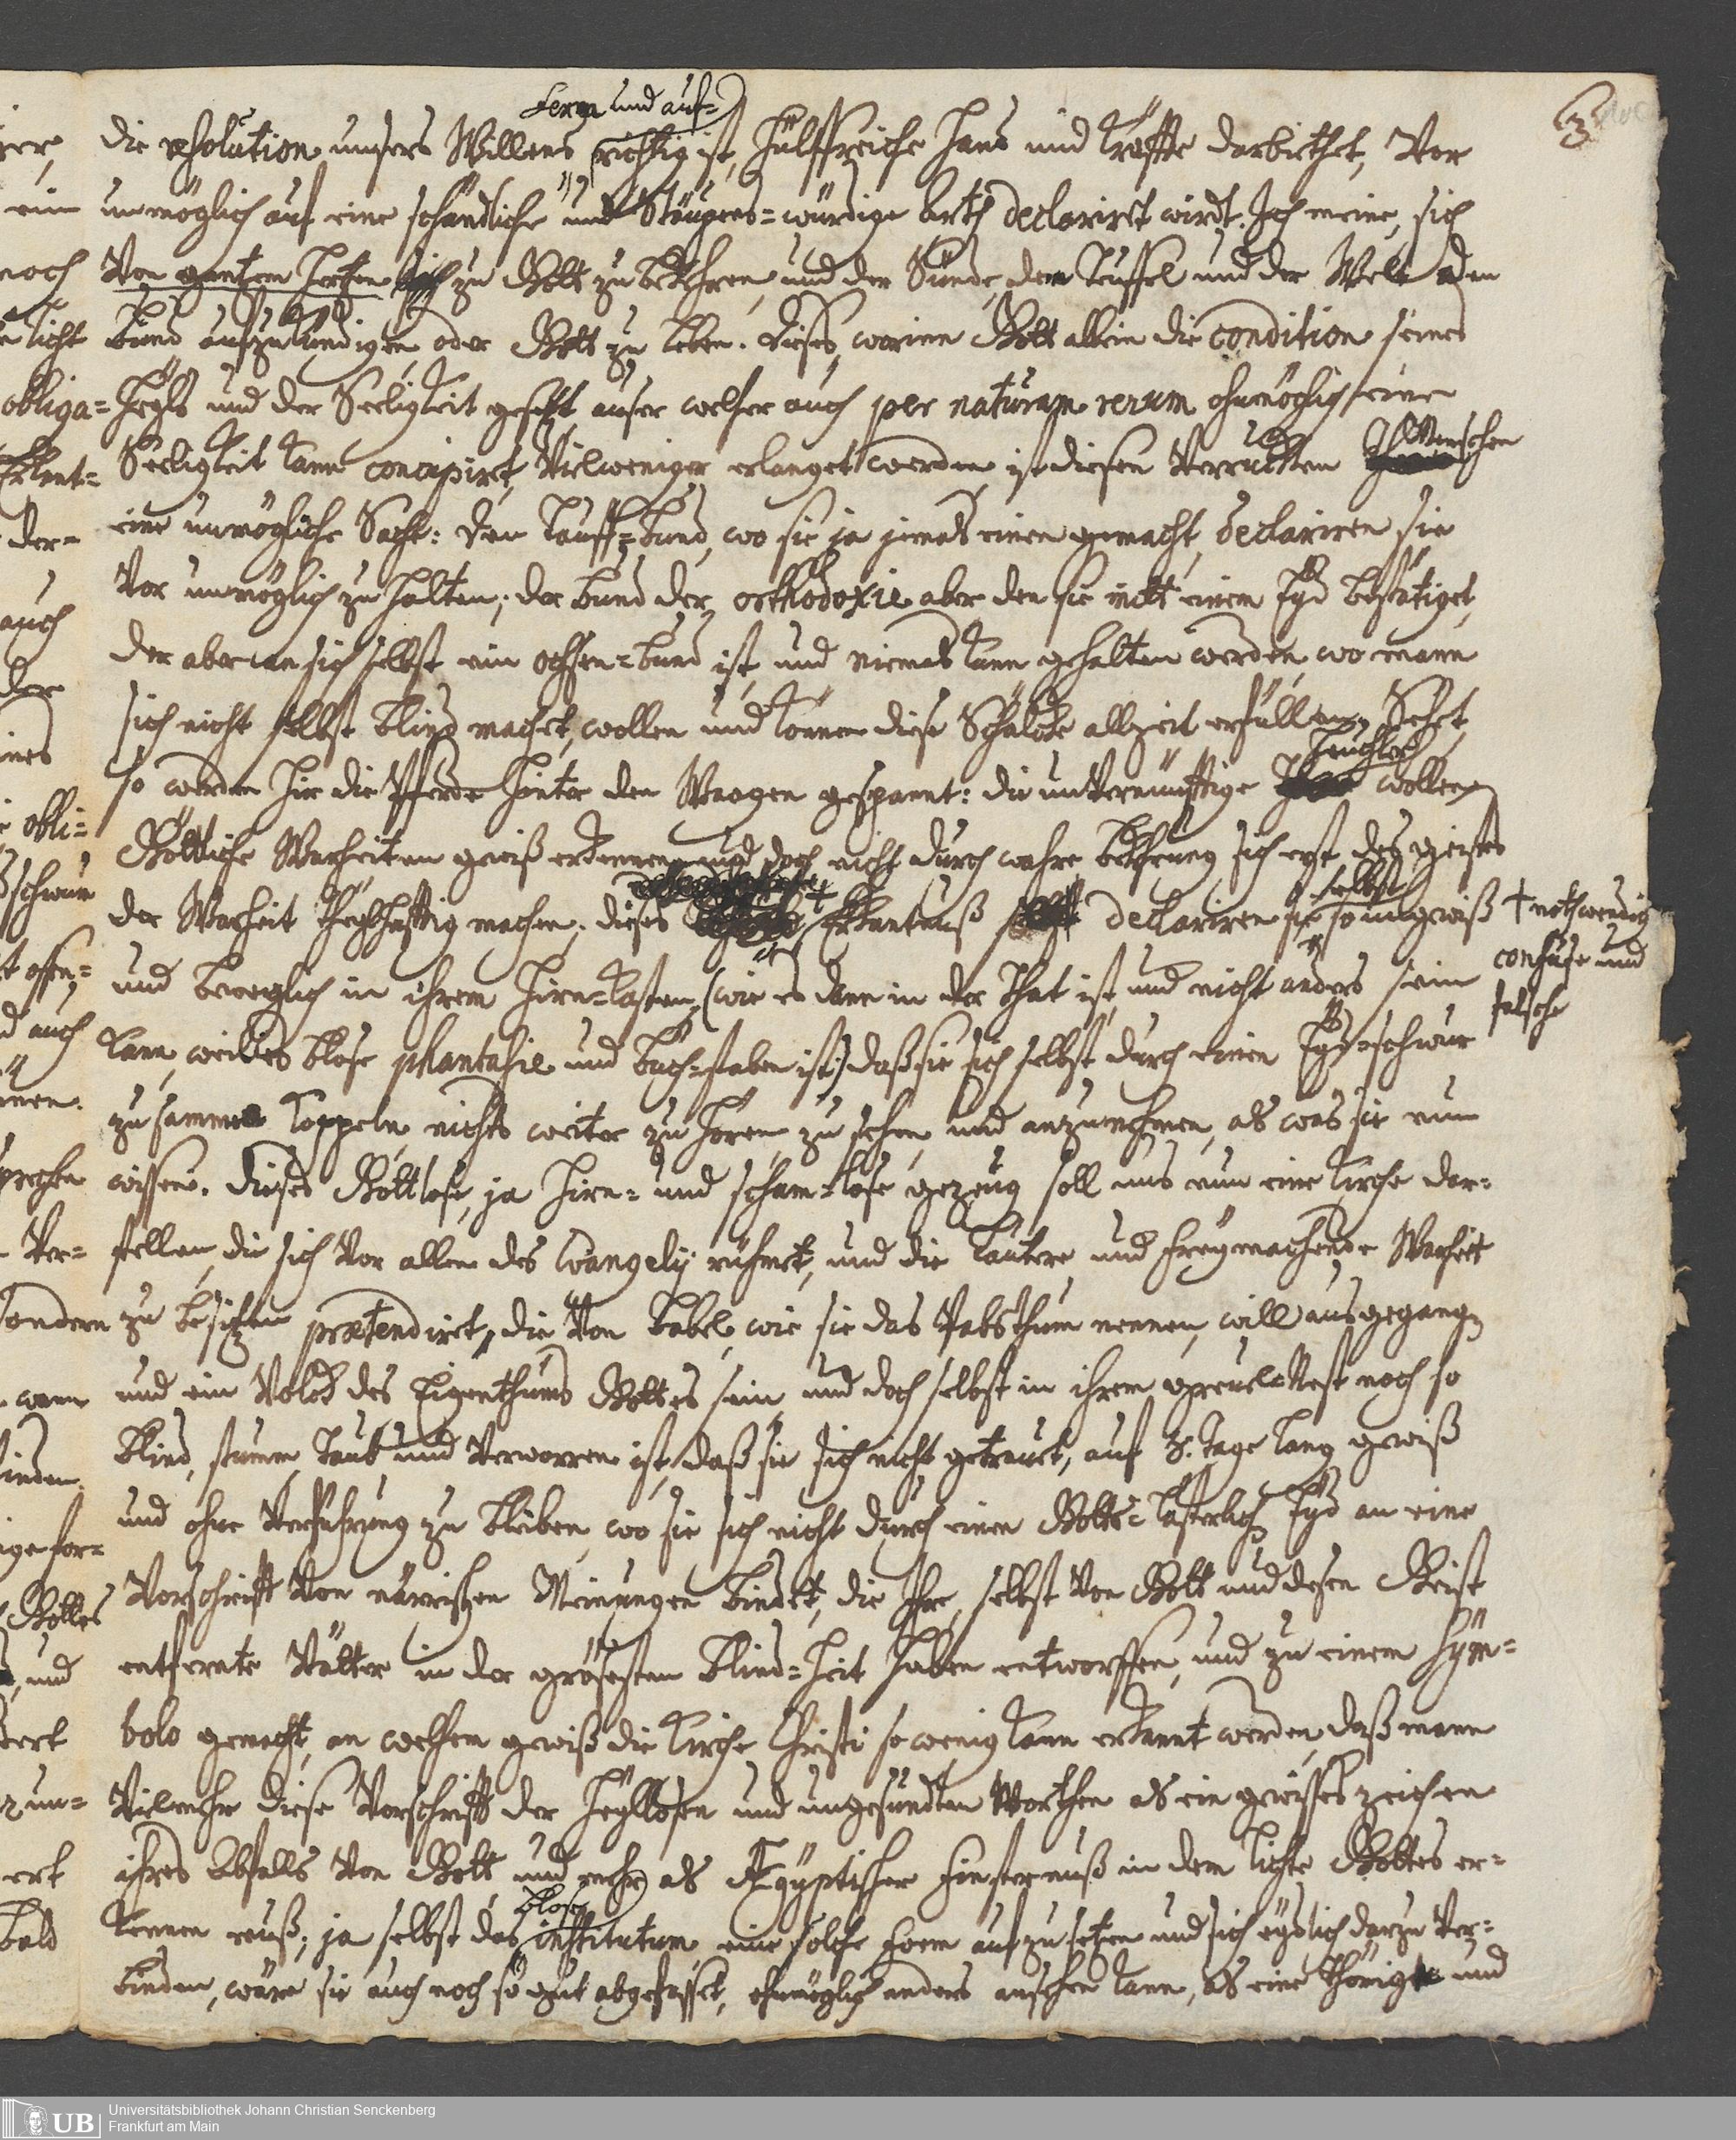 3
ferm und auf-
die resolution unsers Willens richtig ist, hülffreiche Hand und Kräffte darbiethet, Vor
unmöglich auf eine schändliche und Stäupens-würdige arth declariret wirdt. Ich meine, sich
Von gantzem Hertzen zu Gott zu bekehren, und der Sünde, dem Teuffel und der Welt den
Bund aufzukündigen, oder Gott zu leben. Dieses, worinn Gott allein die condition seines
Heyls und der Seeligkeit gesetzt, auser welcher auch per naturam rerum ohnmöglich eine
Seeligkeit kann concipiret, Vielweniger erlanget werden, ist diesen Verruckten Menschen
eine unmögliche Sache: den Tauff-Bund, wo sie ja jemals einen gemacht, declariren sie
Vor unmöglich zu halten; der Bund der orthodoxie aber den sie mitt einem Eyd bestätiget,
der aber an sich selbst ein ochsen-Bund ist, und niemals kann gehalten werden, wo mann
sich nicht selbst blind machet, wollen und können diese Schälcke allzeit erfüllen. Sehet,
Heuchler
so werden hir die Pferde hinter den Wagen gespannt: die unvernünfftige wollen
Göttliche Warheiten gewiß erkennen, und doch nicht durch wahre bekehrung sich erst des geistes
selbst
der Warheit theylhafftig machen; dieses Erkantnuß declariren sie so ungewiß † nothwendig
confuse und
falsche
und beweglich in ihrem Hirn-Kasten, (wie es dann in der That ist, und nicht anders sein
kann, weil es blose phantasie und Buch-staben ist) daß sie sich selbst durch einen Eyd-schwur
zusammen koppeln, nichts weiter zu hören, zu sehen, und anzunehmen, als was sie nun
wissen. Dieses Gottlose, ja Hirn- und scham-lose gezeug soll uns nun eine Kirche dar-
stellen, die sich Vor allen des Evangelij rühmet, und die lautere und freymachende Warheit
zu besitzen prætendiret, die Von Babel, wie sie das Pabsthum nennen, will ausgegangen
und ein Volck des Eigenthums Gottes sein, und doch selbst in ihrem greuel-Nest noch so
blind, stumm, taub und Verworren ist, daß sie sich nicht getrauet, auf 8. tage lang gewiß
und ohne Verführung zu bleiben, wo sie sich nicht durch einen Gottes-lästerlich Eyd an eine
Vorschrifft Von närrischen Meinungen bindet, die Ihre, selbst Von Gott und desen Geist
entfernte Vätter in der grösesten Blind-heit haben entworffen, und zu einem Sym-
bolo gemacht, an welchem gewiß die Kirche Christi so wenig kann erkannt werden, daß mann
Vielmehr diese Vorschrifft der heyllosen und ungesundten Worthen als ein gewisses zeichen
ihres Abfalls Von Gott und mehr als Ægyptischer Finsternuß in dem Lichte Gottes er-
blose
kennen muß; ja selbst das institutum eine solche Form aufzusetzen und sich eydlich darzu Ver-
binden, wäre sie auch noch so gut abgefasset, ohnmöglich anders ansehen kann, als eine thörigte und
ein
noch
licht
obliga-
Erkent-
der-
auch
der
obli-
schwur
offen-
auch
Ver-
sondern
wann
Gottes
und
zun-
bald
Universitätsbibliothek Johann Christian Senckenberg
Frankfurt am Main
UB